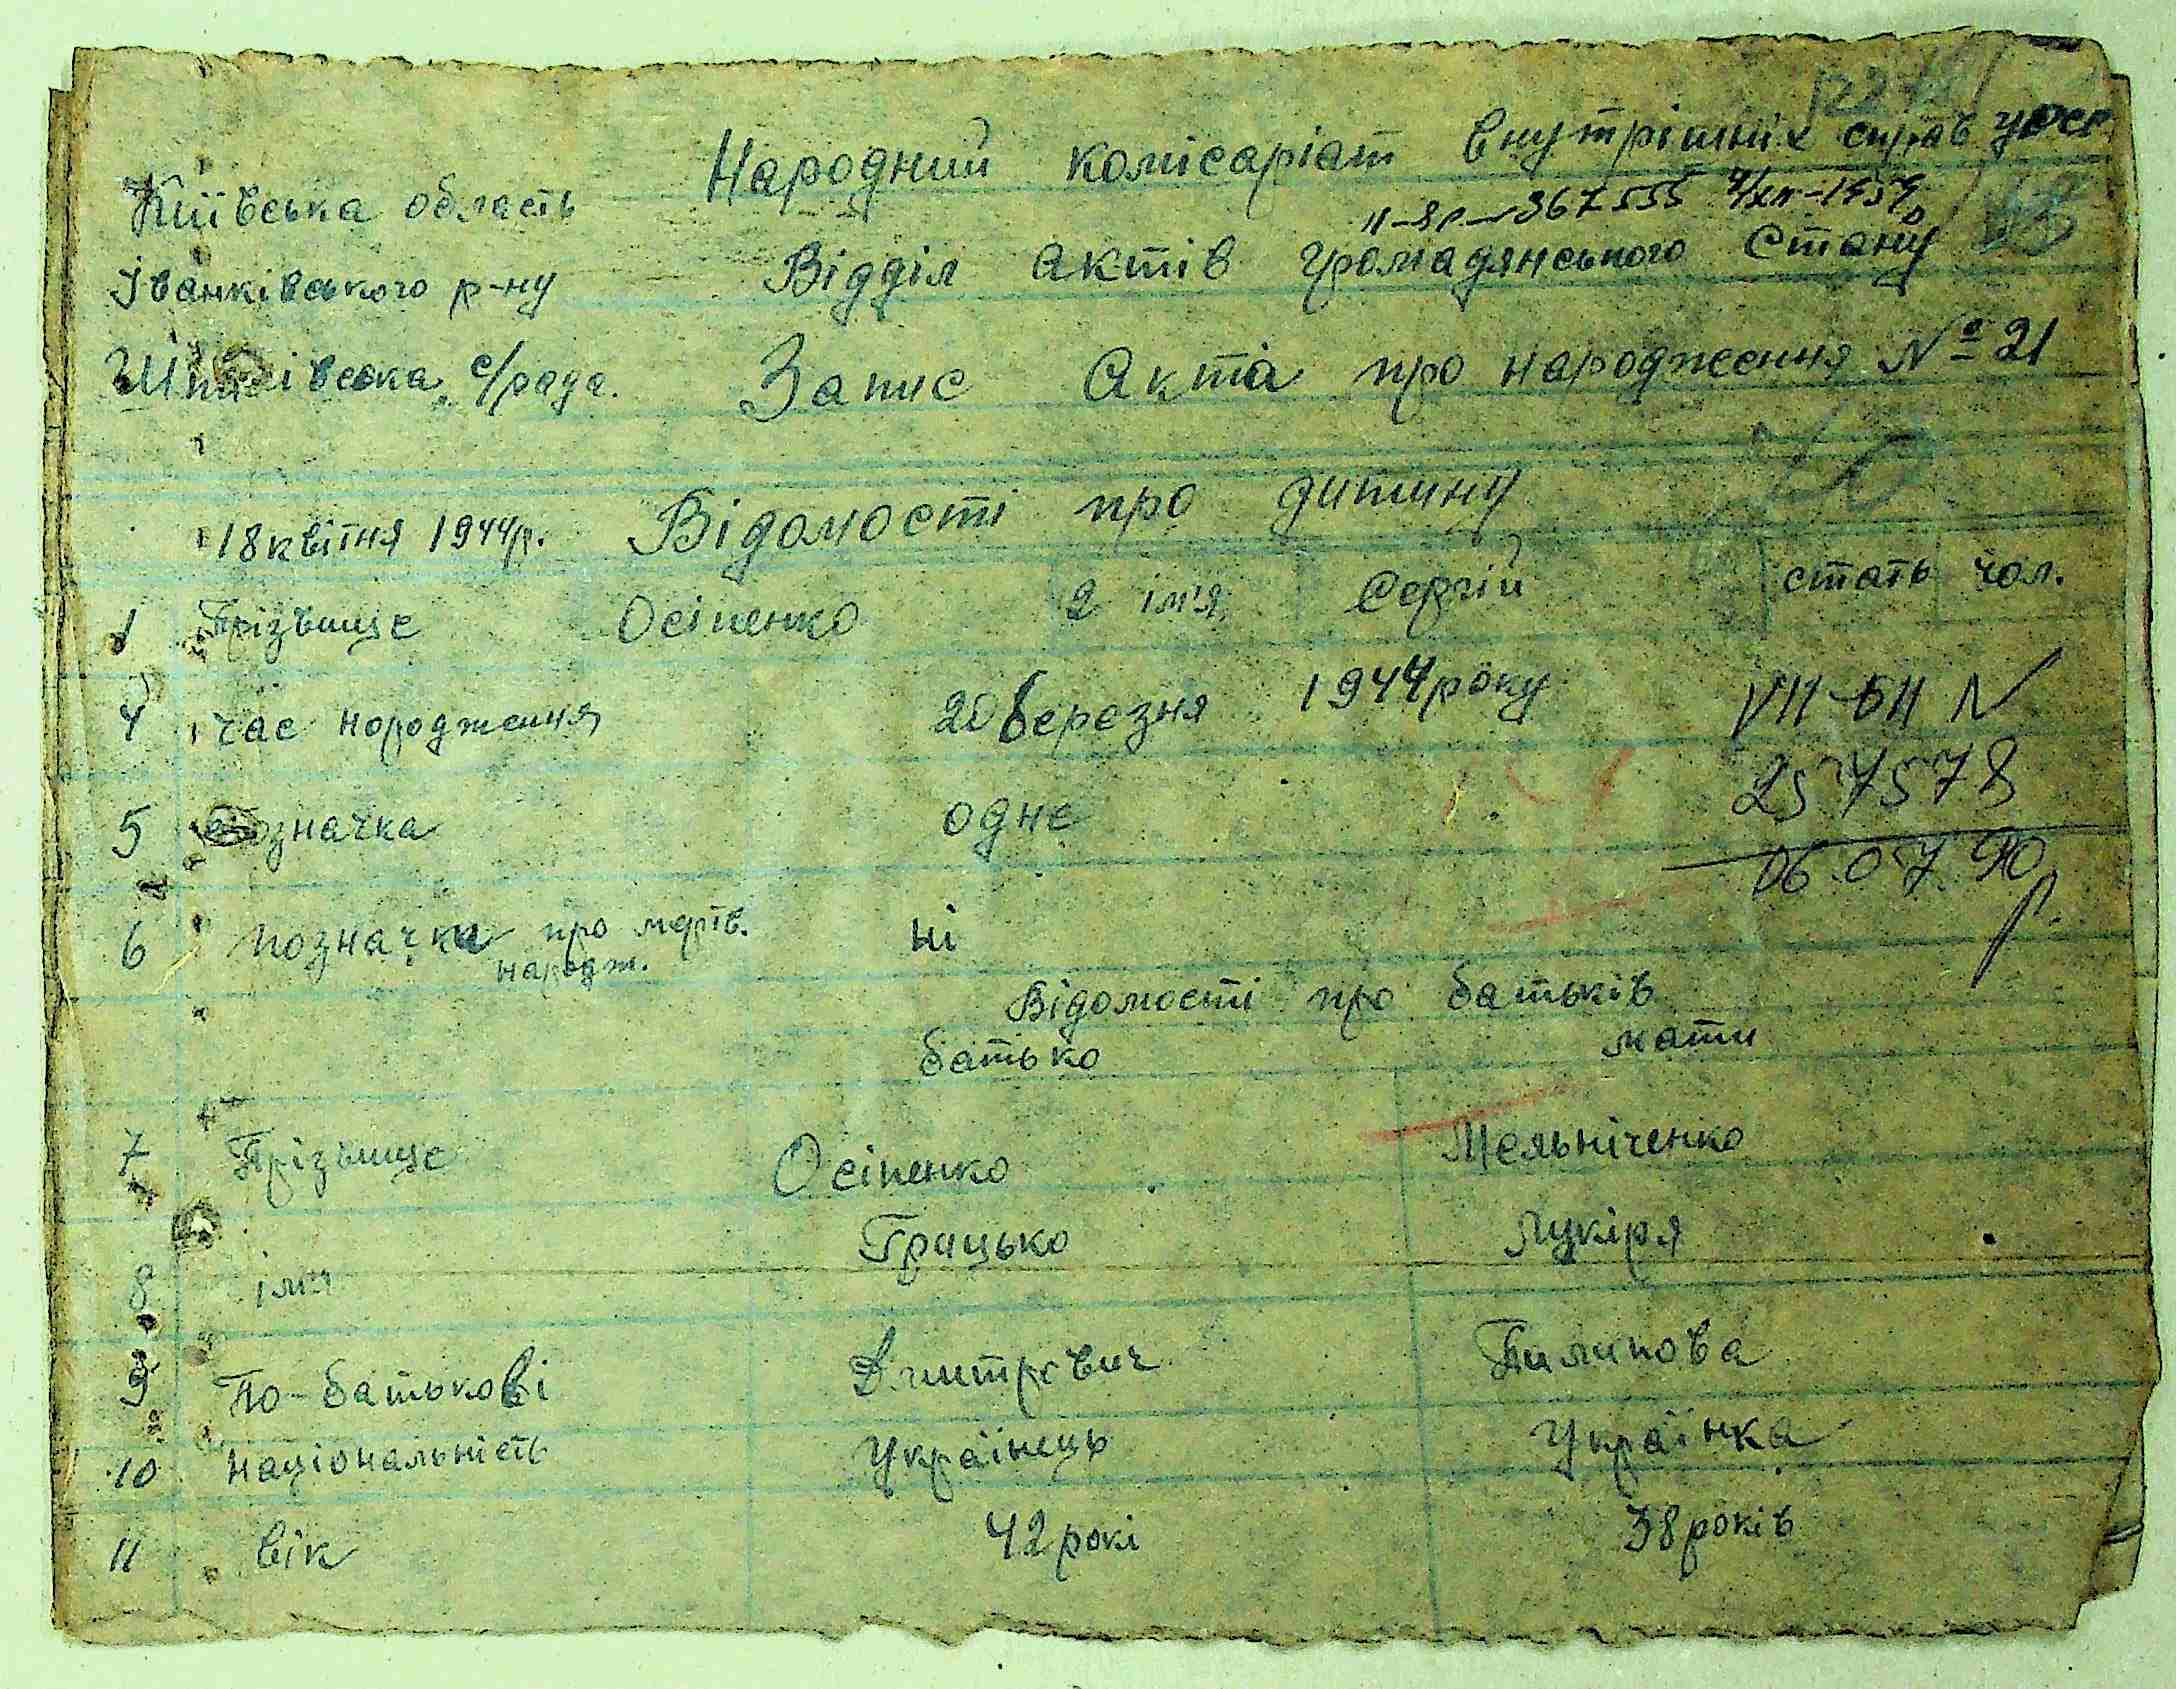 Народний комісаріат внутрішніх справ УРСР
Київська область
Відділ актів громадянського Стану
Іванківського р-ну
Запис Акта про народження № 21
с/рада.
18 квітня 1944р. Відомості про дитину
1 Прізвище Осіпенко 2 ім'я Сергій стать чол.
4 час народження 20 березня 1944 року
VII-БН N
257578
5 Позначка одне
06.07.90
р.
6 позначки про мертв. народж. ні
Відомості про батьків
батько мати
7 Прізвище Осіпенко Мельніченко
8 ім'я Грицько Лукіря
9 По-батькові Дмитрович Пилипова
10 Національність Українець Українка
11 вік 42 рокі 38 років